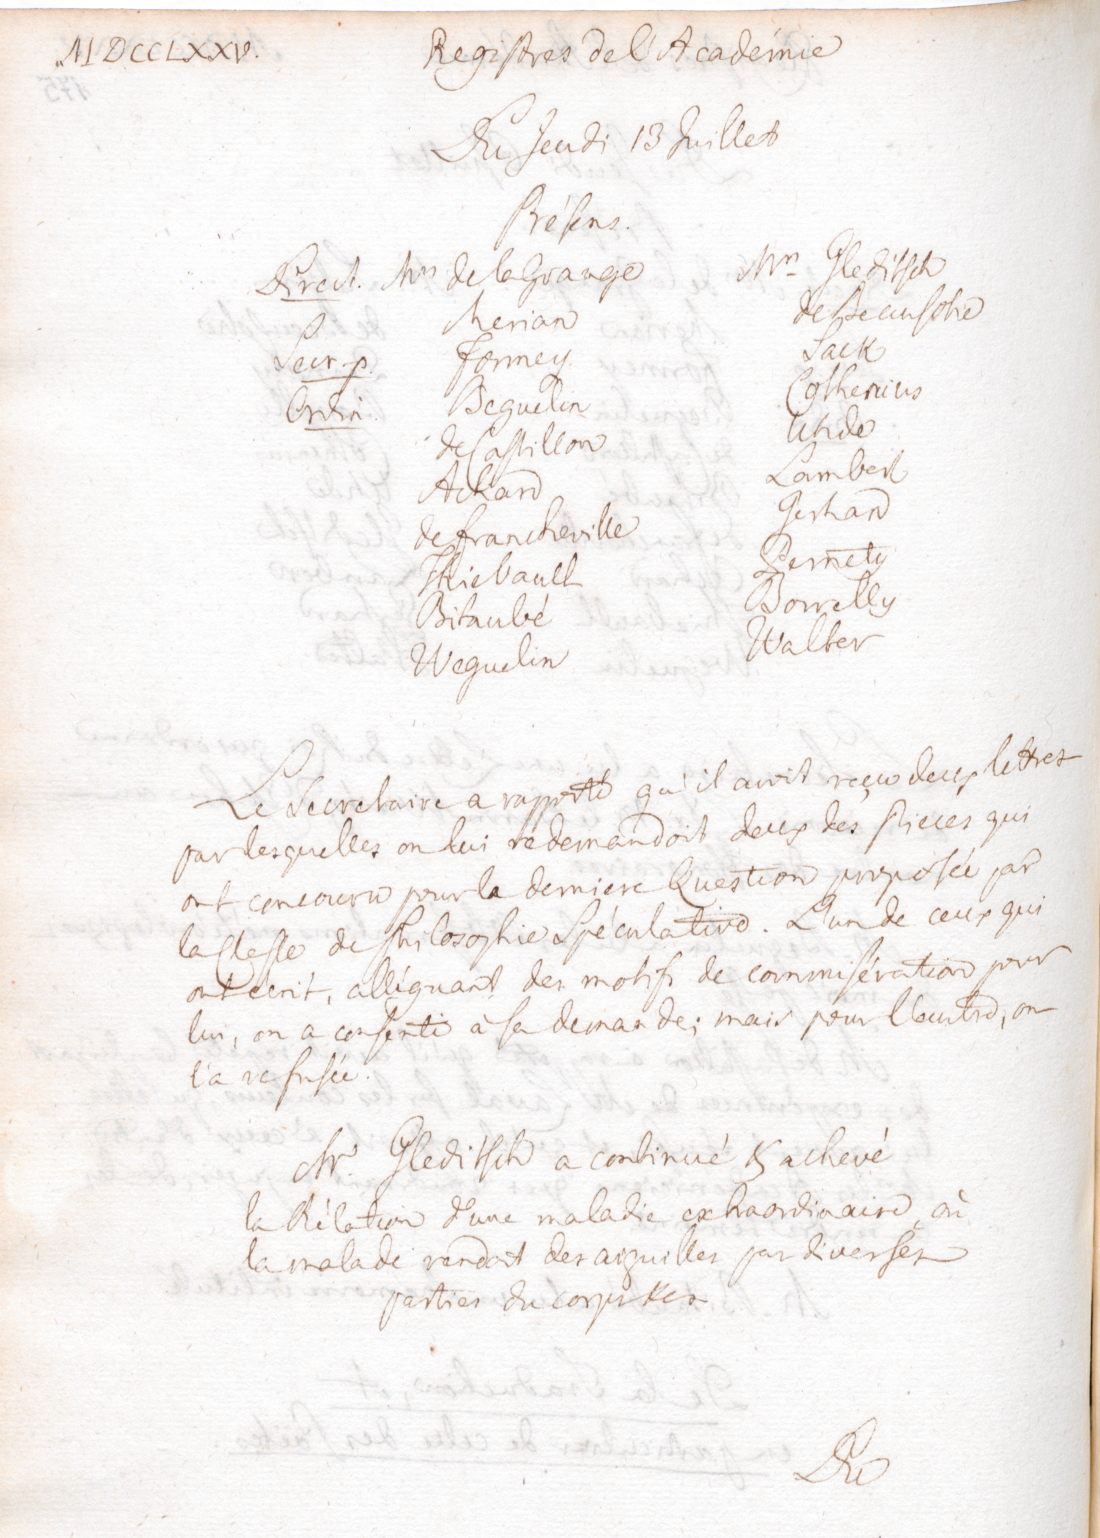 MDCCLXXV.
Registres de l'Académie
Du Jeudi 13 Juillet
Présens.
Direct. Mrs de la Grange
Merian
Secr. p. Formey
Ordin. Beguelin
de Castillon
Achard
de Francheville
Thiebault
Bitaubé
Weguelin
Mrs Gleditsch
de Beausobre
Sack
Cothenius
Uhde
Lambert
Gerhard
Pernety
Borrelly
Walter
Le Secretaire a rapporté qu'il avoit reçu deux lettres
par lesquelles on lui redemandoit deux des Pieces qui
ont concouru pour la derniere Question proposée par
la Classe de Philosophie Spéculative. L'un de ceux qui
ont écrit, alléguant des motifs de commisération pour
lui, on a consenti à sa demande; mais pour l'autre, on
l'a refusée.
Mr. Gleditsch a continué & achevé
la Rélation d'une maladie extraordinaire où
la malade rendoit des aiguilles par diverses
parties du corps &c.
Du